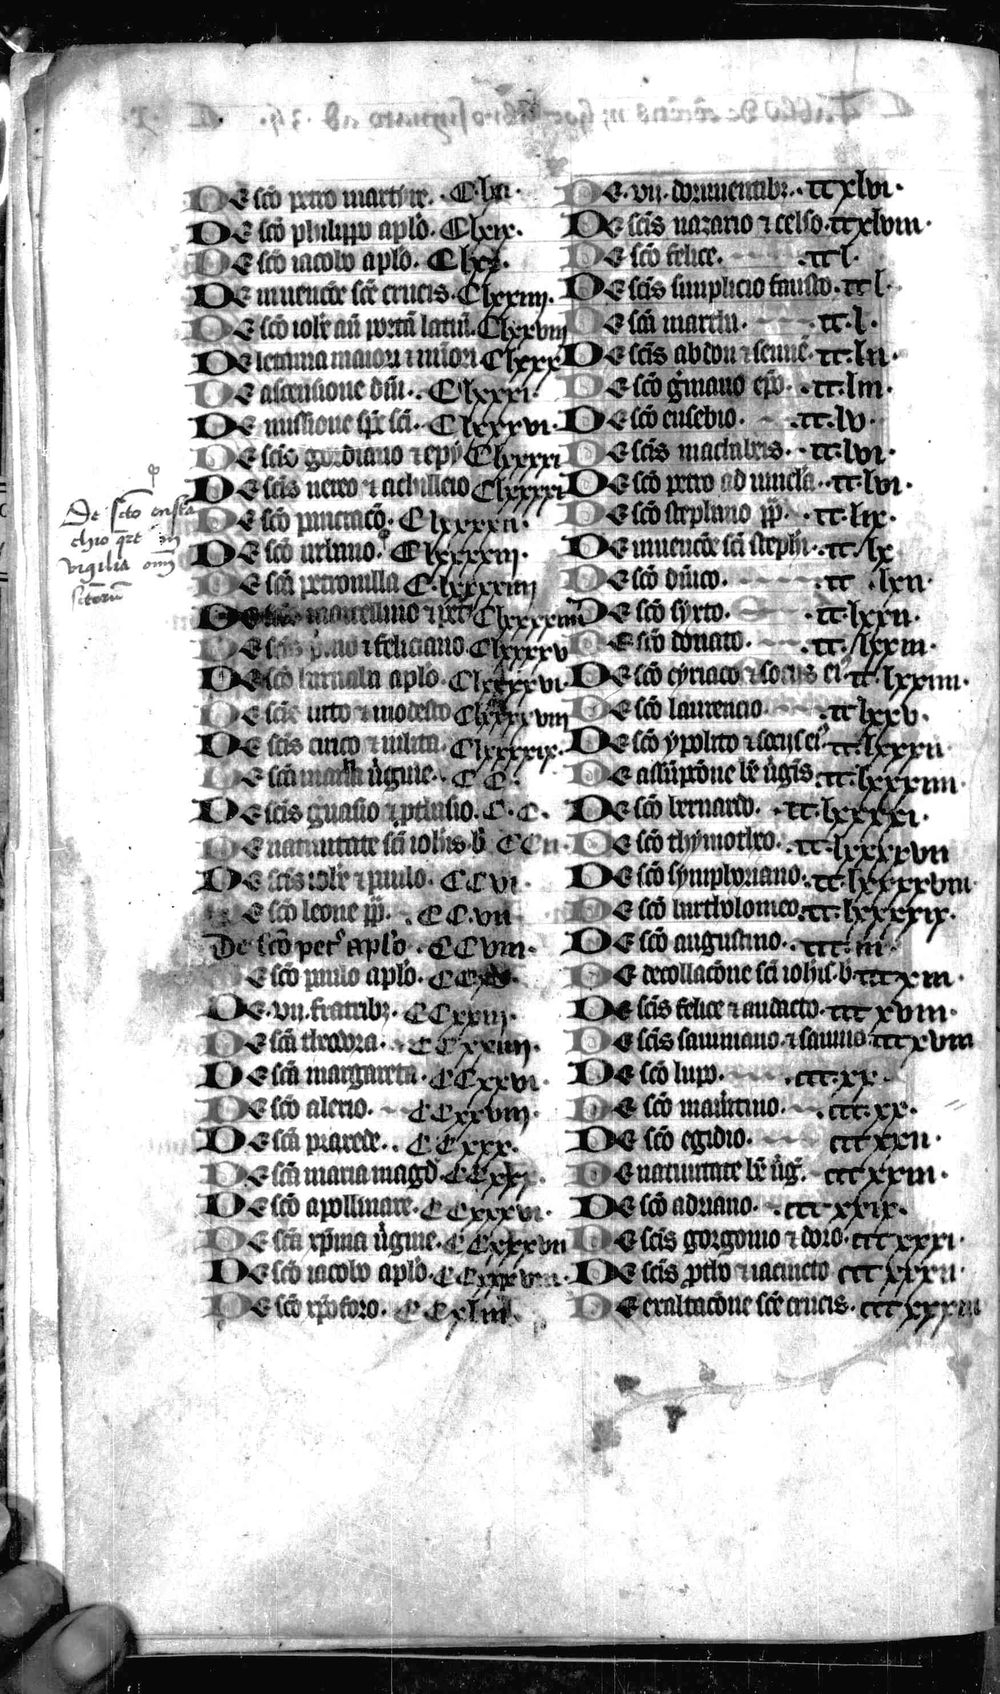 De scō petro martire. Clxii.
De scō philippo aplo. Clxix.
De scō iacobo aplo. Clxx.
De inuencōe scē crucis. Clxxiiii.
De scō iohe an̄ portā latinā. Clxxviii
De letania maiori et minori Clxxx
De ascensione dn̄i. Clxxxi.
De missione sp̄s sc̄i. Clxxxvi.
De scīs gordiano et epy Clxxxxi
De scīs nereo et achilleio Clxxxxi
De scō pancracō. Clxxxxii.
De scō urbano. Clxxxxiii.
De scā petronilla Clxxxxiiii
De marcellino et pet Clxxxxiiii
De scīs p̄mo et feliciano. Clxxxxv
De scō barnaba aplo. Clxxxxvi.
De scīs uito et modesto Clxxxxviii
De scīs cirico et iulita. Clxxxxix.
De scā maria ūgine. CC.
De scīs geruasio et ꝓthasio. CC.
De natiuitate scī iohīs. b. CCii.
De scīs iohe et paulo. CCvi.
De scō leone pp̄. CCvii
De scō pet' aplo. CCviii.
e scō paulo aplo.
De. vii. fratribꝫ. CCxxiii.
De scā theodora. CCxxiiii.
De scā margareta. CCxxvi.
De scō alexio. CCxxviii.
De scā praxede. CCxxx.
De scā maria magd̄. CCxxx.
De scō apollinare. CCxxxvi.
De scā xp̄ina ūgine. CCxxxvii
De scō iacobo aplo. CCxxxviii.
De scō xp̄oforo. CCxliii.
De scto eusta
chio qre in
vigilia omī
sctorū
De. vii. dormientibꝫ. ccxlvi.
De scīs nazario et celso. ccxlviii.
De scō felice. ccl.
De scīs simplicio fausto. ccl.
De scā martha. cc.l.
De scīs abdon et sennē. cc.lii.
De scō ḡmano epō. cc.liii.
De scō eusebio. cc.lv.
De scīs machabeis. cc.lvi.
De scō petro ad uincla. cc.lvi.
De scō stephano pp̄. cc.lix.
De inuencōe scī stephi. cc.lx
De scō dn̄ico. cc lxii.
De scō syxto. cc.lxxii.
De scō donato. cc.lxxiii.
De scō cyriaco et socīis ei' cc.lxxiiii.
De scō laurencio. cc lxxv.
De scō ypolito et socīis ei' cc.lxxxii
De assūpcōne be ūgīs. cc.lxxxiiii.
De scō bernardo. cc.lxxxxi.
De scō thymotheo. cc.lxxxxvii
De scō symphoriano. cc.lxxxxviii.
De scō bartholomeo. cc.lxxxxix.
De scō augustino. ccc.iii.
De decollacōne scī iohīs. b. cccxiii.
De scīs felice et audacto. ccc xviii.
De scīs sauiniano. et sauina. cccxviii
De scō lupo. ccc.xx.
De scō mamertino. ccc.xx.
De scō egidio. cccxxii.
De natiuitate be ūg. cccxxiii.
De scō adriano. cccxxix.
De scīs gorgonio et doro. cccxxxi.
De scīs ꝓtho et iacincto cccxxxii.
De exaltacōne scē crucis. cccxxxiii